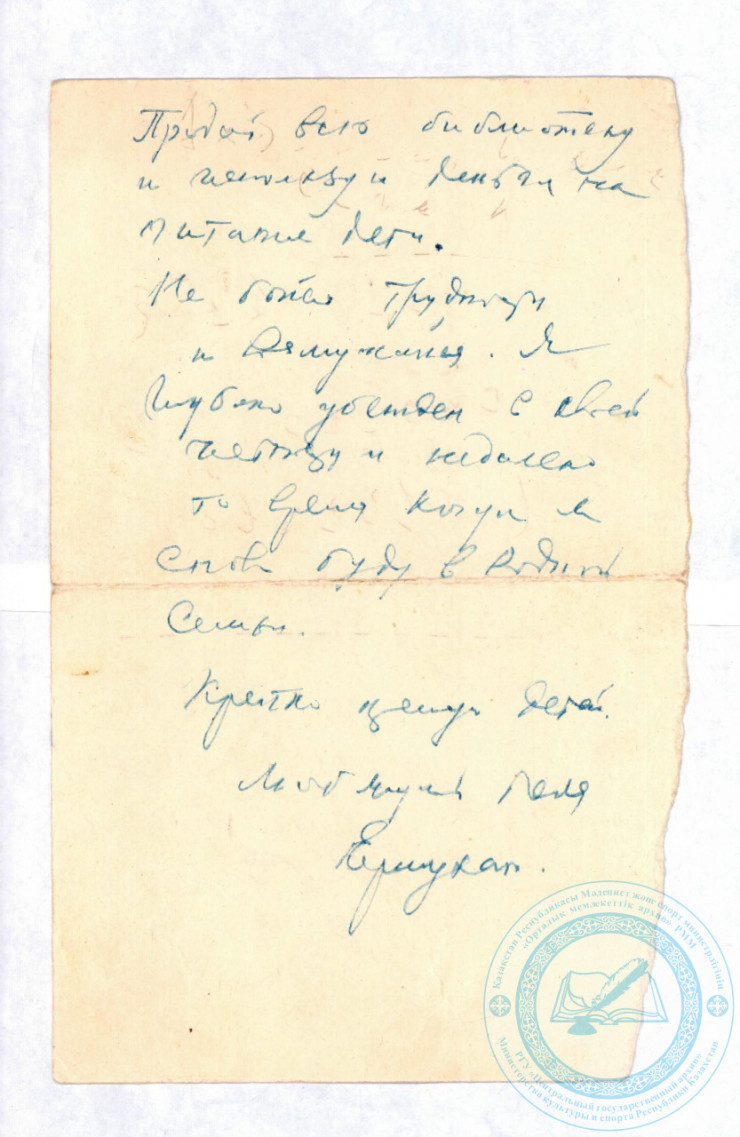 Продай всю библиотеку
и используй деньги на
питание дети.
Не бойся трудности
и Бекмуханья. Я
глубоко убежден с своей
честности и недалеко
то время когда я
снова буду в родной
семьи.
Крепко целую детей.
Любящий тебя
Ермухан.
Қазақстан Республикасы Мәдениет және спорт министрлігінің
«Орталық мемлекеттік архив» РММ
РГУ «Центральный государственный архив»
Министерства культуры и спорта Республики Казахстан